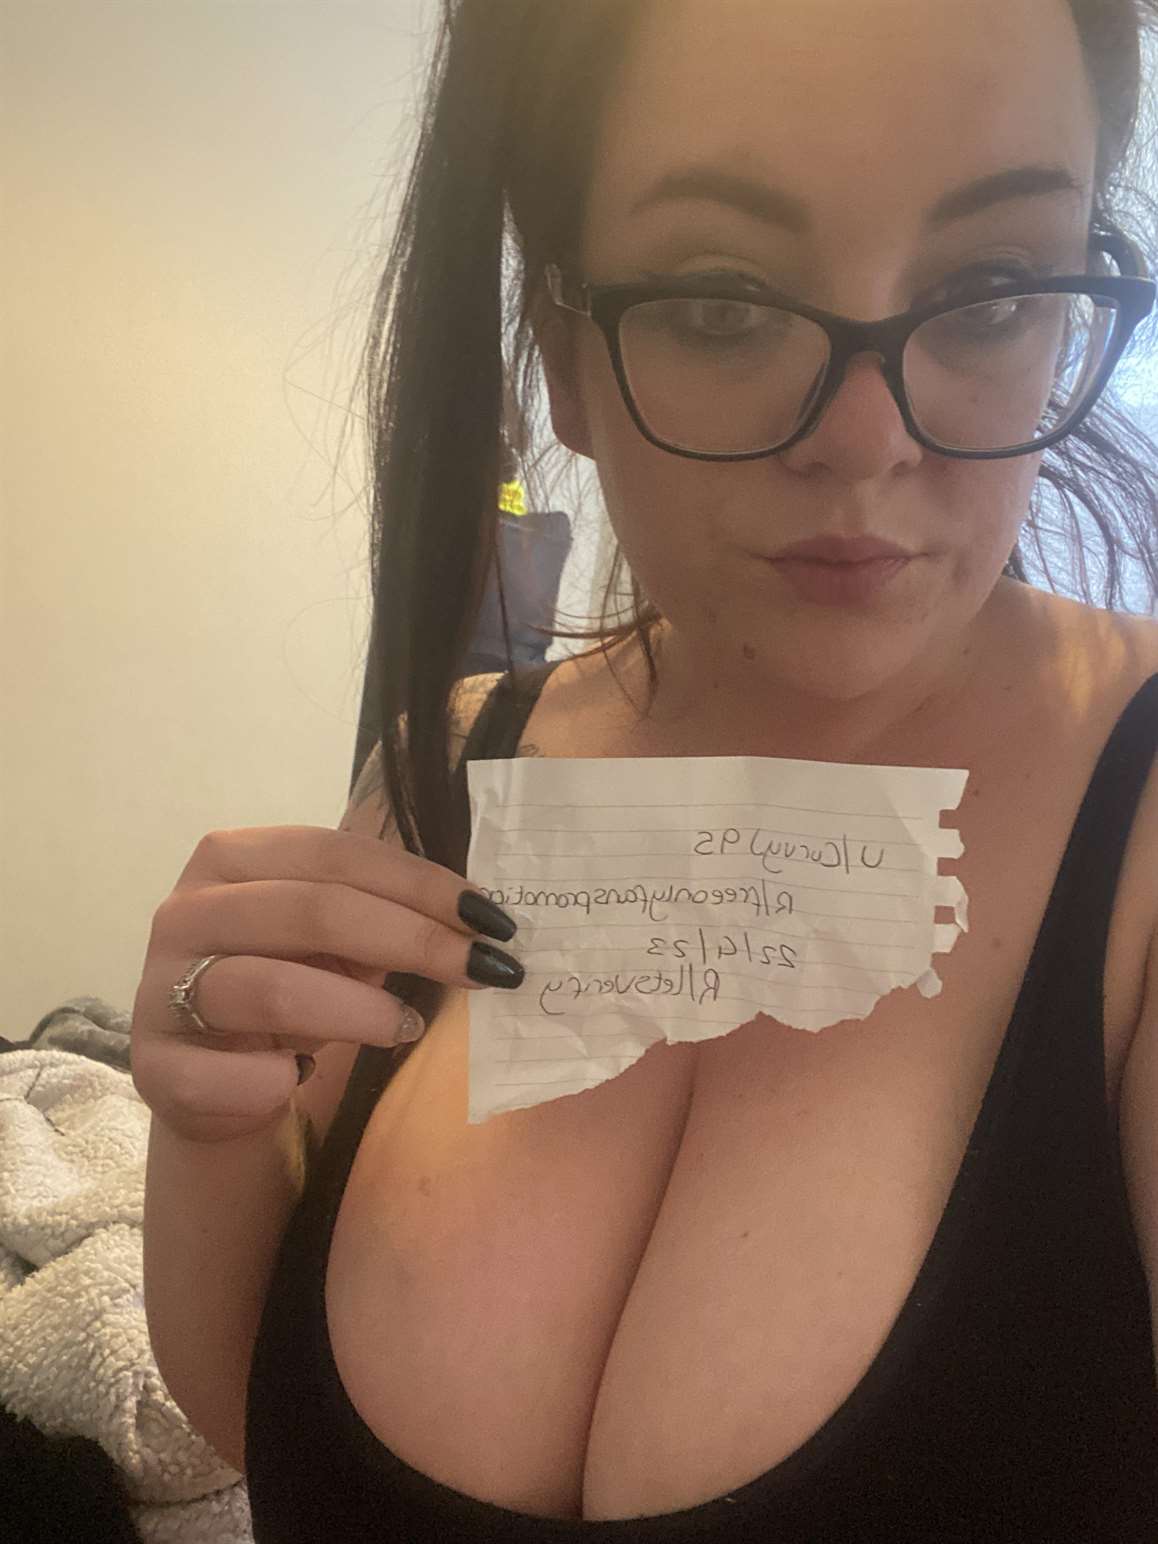 U/Curvyj95
R/freeonlyfanspromotion
22/4/23
R/letsverify